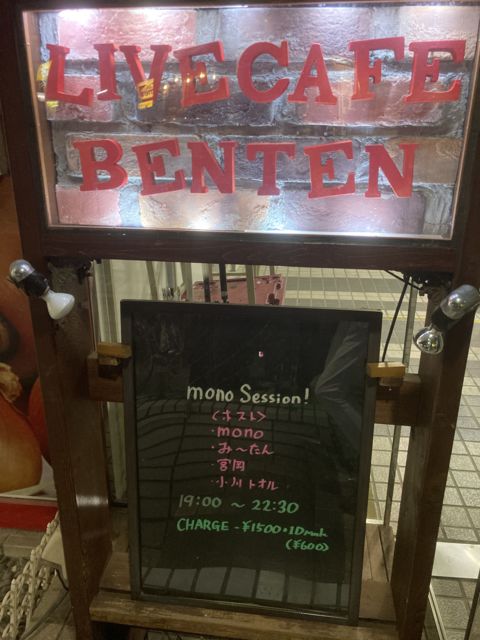 LIVE CAFE
BENTEN
mono Session!
<ホスト>
・mono
・み〜たん
・宮岡
・小川トオル
19:00 〜 22:30
CHARGE - ¥1500+1Drink
(¥600)